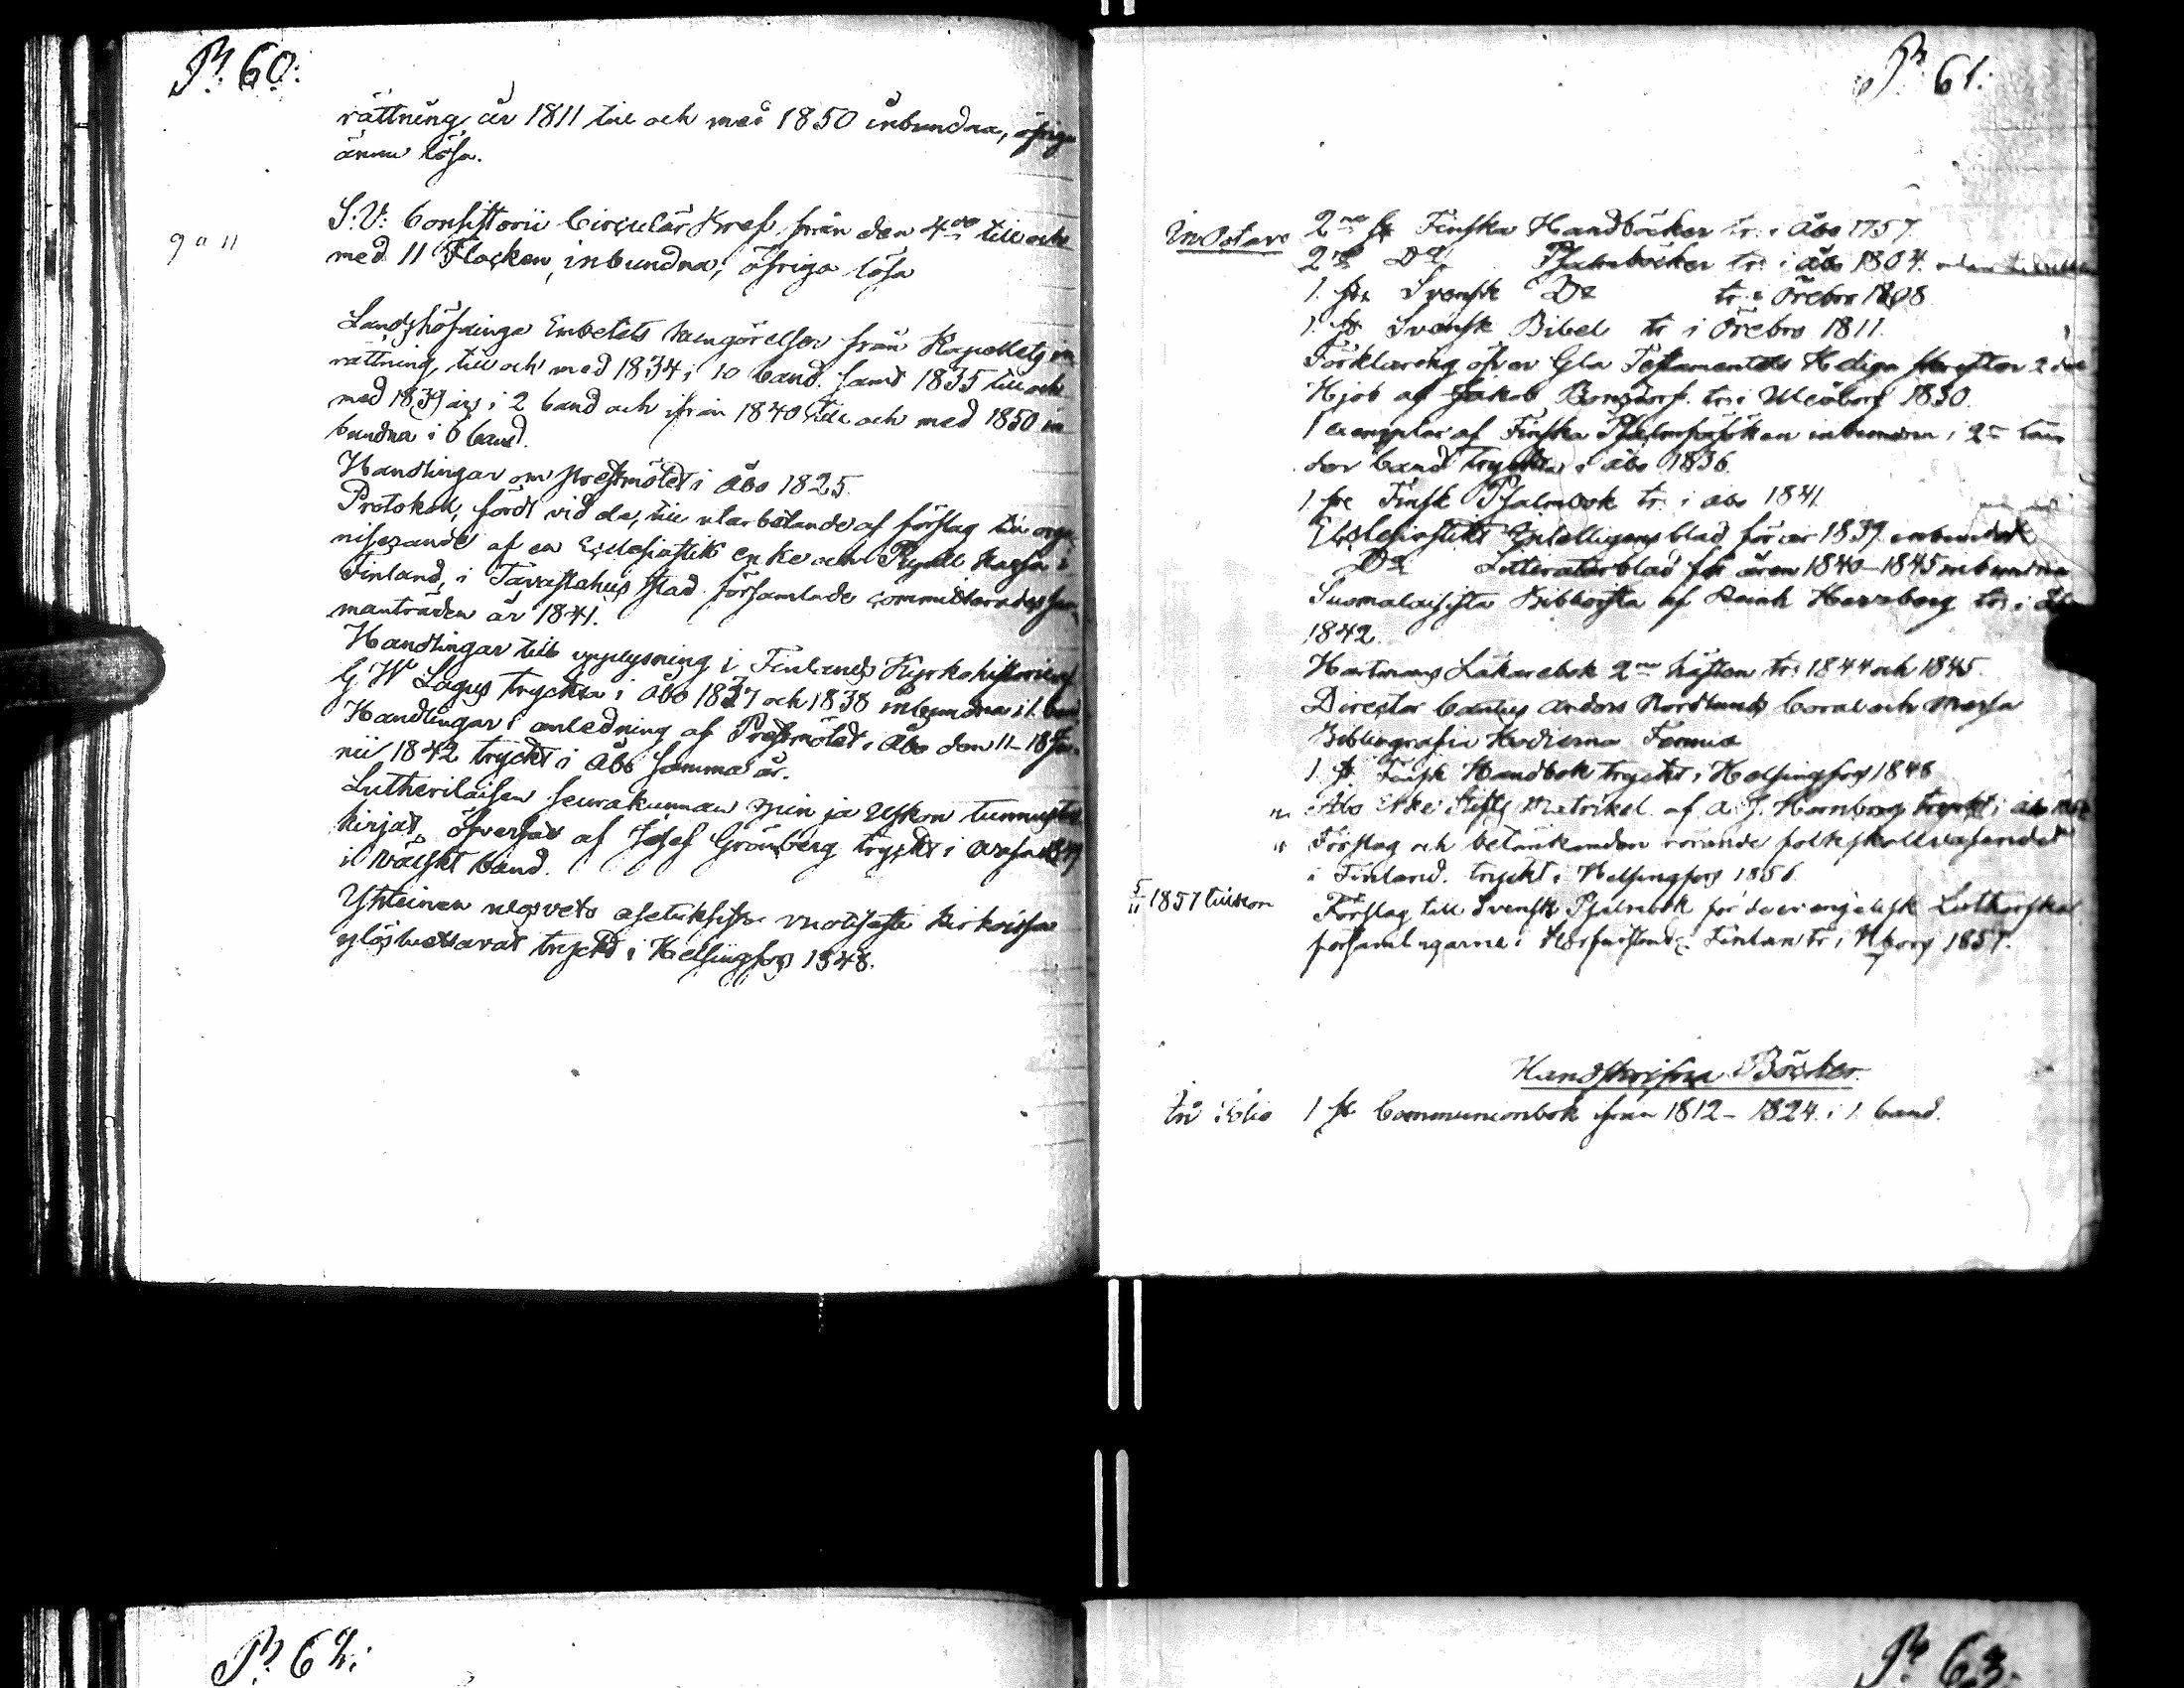 P. 60:
rättning år 1811 till och med 1850 inbundna, öfriga
ännu lösa.
9 a 11
S: V: Consistorii Circulär bref från den 4de till och
med 11 Flocken inbundna, öfriga lösa
Landshöfdinge Embetets kungörelser från Kapellets in
rättning, till och med 1834 i 10 band. samt 1835 till och
med 1839 års i 2 band och från 1840 till och med 1850 in
bundna i 6 band.
Handlingar om prestmötet i Åbo 1825.
Protokoll, fördt vid de, till utarbetande af förslag till orga
niserande af en Ecclesiastik enke och Pupill Kassa i
Finland, i Tavastehus stad församlade committerades sam
manträden år 1841.
Handlingar till upplysning i Finlands Kyrkohistoria af
G W Lagus tryckta i Åbo 1837 och 1838 inbundna i 1. band
Handlingar i anledning af Prestmötet i Åbo den 11-18 Ju-
nii 1842 tryckt i Åbo samma år.
Lutherilaisen seurakunnan opin ja Uskon tunnustus
kirjat, öfversatt af Josef Grönberg tryckt i Wasa 1849
i wälskt band.
Yhteinen neqveto asetuksista vuotisesti kirkoissa
ylösluettavat tryckt i Helsingfors 1848.
P. 61:
In Octavo
2ne st Finska Handböcker tr: i Åbo 1757.
2ne Do Psalmböcker tr: i Åbo 1804.
1. st. Svensk Do tr: i Örebro 1808
1. st Svensk Bibel tr i Örebro 1811.
Förklaring öfver Gla Testamentets Heliga skrifter 2 del
Hjob af Jakob Bonsdorf. tr: i Uleåborg 1830.
1 exemplar af Finska Psalmboken inbunden i 2ne
band tryckta i Åbo 1836.
1 st Finsk Psalmbok tr: i Åbo 1841.
Ecclesiastikt Intelligens blad för år 1839 inbundet
Do Litteraturblad för åren 1840-1845 inbundna
Suomalaisista Bibliosta af Reinh Herzberg tr: i Åbo
1842.
Hartmans Läkarebok 2ne häften tr: 1844 och 1845.
Director Cantus Anders Nordlunds Coral och Messa
Bibliografia Hodierna Fennia
1. st Finsk Handbok tryckt i Helsingfors 1848
" Åbo Erke Stifts Matrikel af A. J. Hornborg tryckt i Åbo
" Förslag och betänkanden rörande folkskoleväsendet
i Finland. tryckt i Helsingfors 1856.
5/11 1857 tillkom
Förslag till Svensk Psalmbok för de evangelisk Lutherska
församlingarne i Storfurstend: Finlan tr: i Hfors 1857.
Handskrifna Böcker.
In folio
1 st Communionbok från 1812-1824. i 1. band.
P. 62:
P. 63.